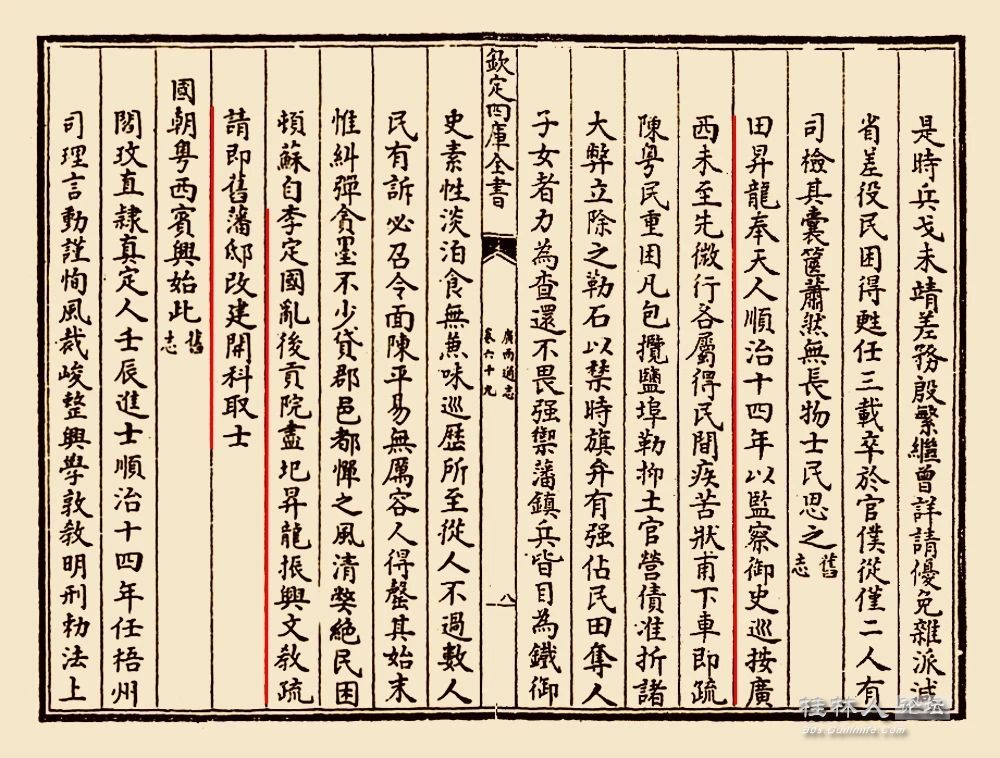 是時兵戈未靖差務殷繁繼曾詳請優免雜派減
省差役民困得甦任三載卒於官僕從僅二人有
司檢其囊篋蕭然無長物士民思之舊志
田昇龍奉天人順治十四年以監察御史巡按廣
西未至先微行各屬得民間疾苦狀甫下車即疏
陳粵民重困凡包攬鹽埠勒抑土官營債准折諸
大弊立除之勒石以禁時旗弁有强佔民田奪人
子女者力為查還不畏强禦藩鎮兵皆目為鐵御
欽定四庫全書
廣西通志
卷六十九
八
史素性淡泊食無兼味巡歷所至從人不過數人
民有訴必召令面陳平易無厲容人得罄其始末
惟糾彈貪墨不少貸郡邑都憚之風清獘絶民困
頓蘇自李定國亂後貢院盡圯昇龍振興文教疏
請即舊藩邸改建開科取士
國朝粵西賓興始此舊志
閻玫直隸真定人壬辰進士順治十四年任梧州
司理言動謹恂風裁峻整興學敦教明刑勑法上
桂林人论坛